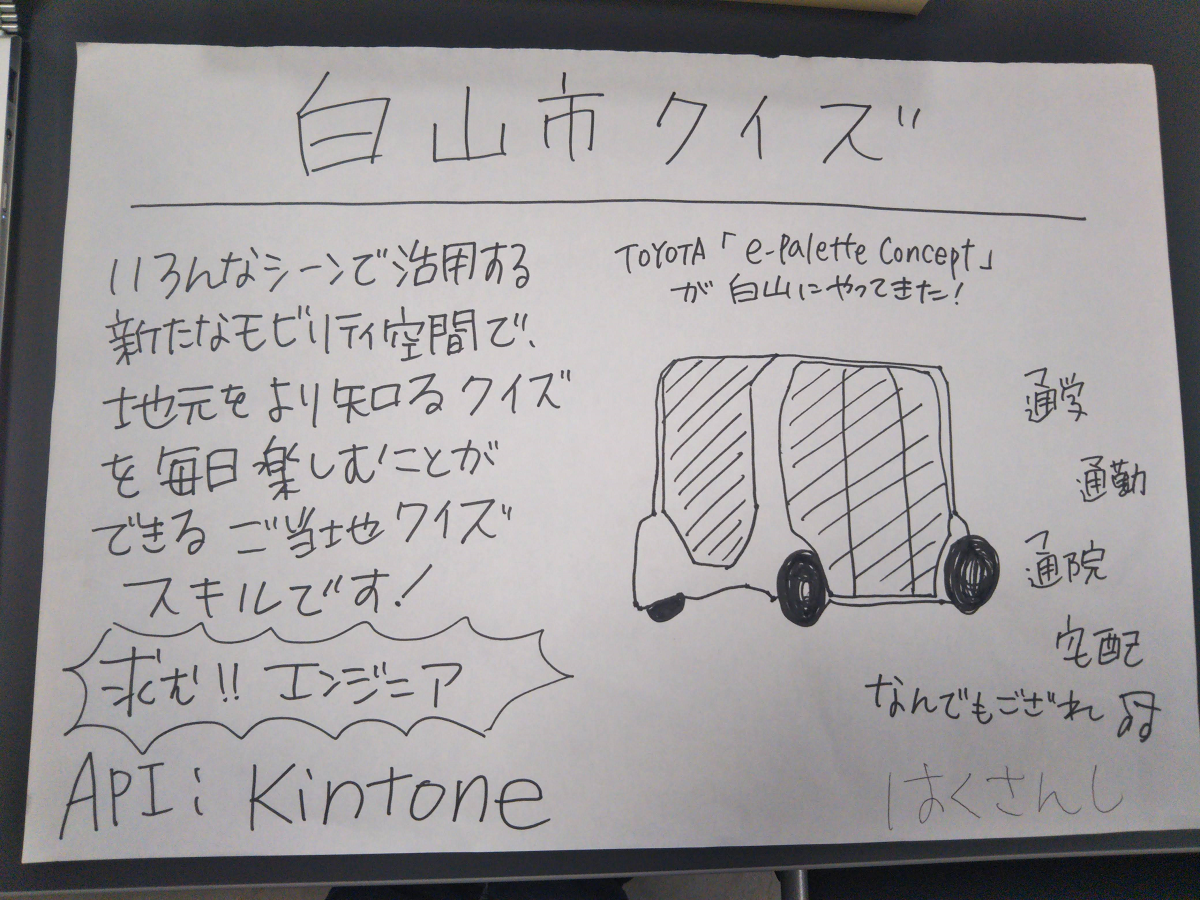 白山市クイズ
いろんなシーンで活用する
新たなモビリティ空間で、
地元をより知るクイズ
を毎日楽しむことが
できるご当地クイズ
スキルです!
求む!! エンジニア
API: Kintone
TOYOTA「e-Palette Concept」
が白山にやってきた!
通学
通勤
通院
宅配
なんでもござれ
はくさんし